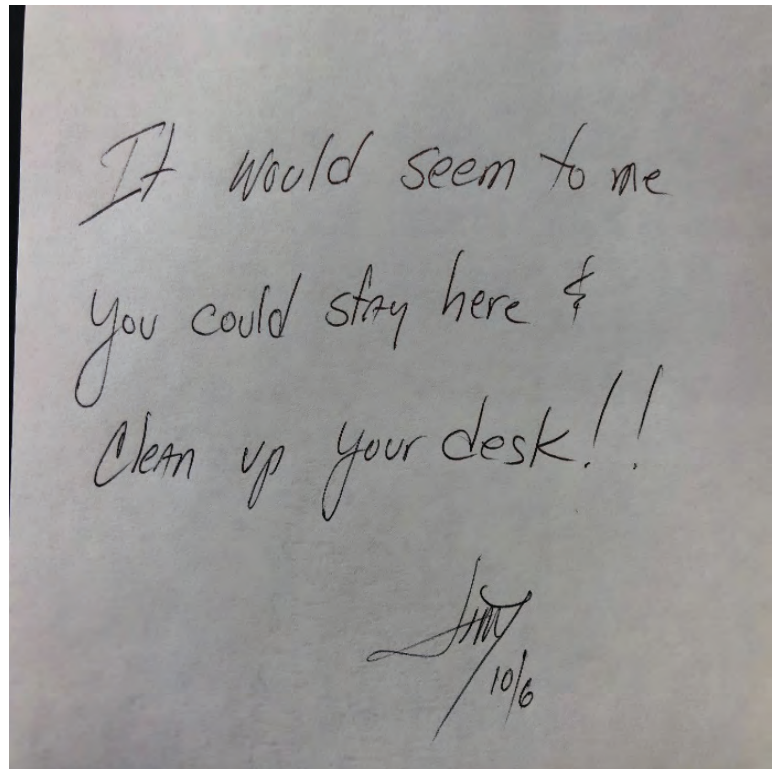 It would seem to me
you could stay here &
Clean up your desk!!
Jim
10/6